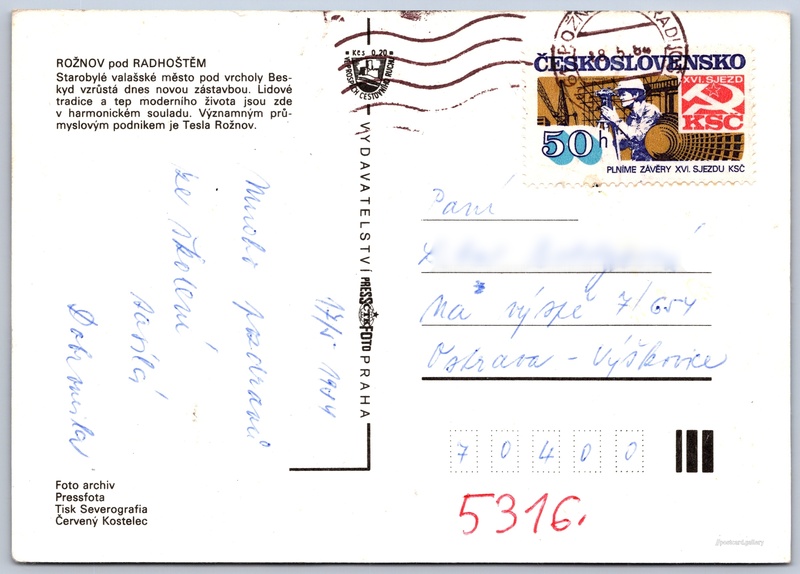 ROŽNOV pod RADHOŠTĚM
Starobylé valašské město pod vrcholy Bes-
kyd vzrůstá dnes novou zástavbou. Lidové
tradice a tep moderního života jsou zde
v harmonickém souladu. Významným prů-
myslovým podnikem je Tesla Rožnov.
17/5 1984
Mnoho pozdravů
ze školení
zasílá
Dobromila
Foto archiv
Pressfota
Tisk Severografia
Červený Kostelec
Kčs 0,20
VYDAVATELSTVÍ PRESSFOTO PRAHA
ČTK
ČESKOSLOVENSKO
XVI. SJEZD
KSČ
50 h
PLNÍME ZÁVĚRY XVI. SJEZDU KSČ
Paní
Na výspě 7/654
Ostrava - Výškovice
70400
5316.
@postcard.gallery